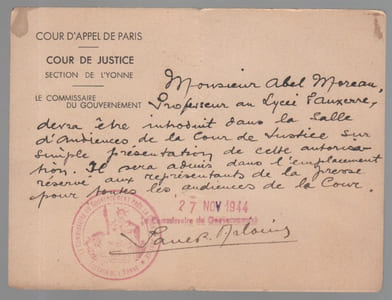 COUR D'APPEL DE PARIS
COUR DE JUSTICE
SECTION DE L'YONNE
LE COMMISSAIRE
DU GOUVERNEMENT
Monsieur Abel Moreau,
Professeur au Lycée d'Auxerre,
devra être introduit dans la Salle
d'Audiences de la Cour de Justice sur
simple présentation de cette autorisa-
tion. Il sera admis dans l'emplacement
réservé aux représentants de la presse
pour toutes les audiences de la Cour.
27 NOV 1944
Le Commissaire du Gouvernement